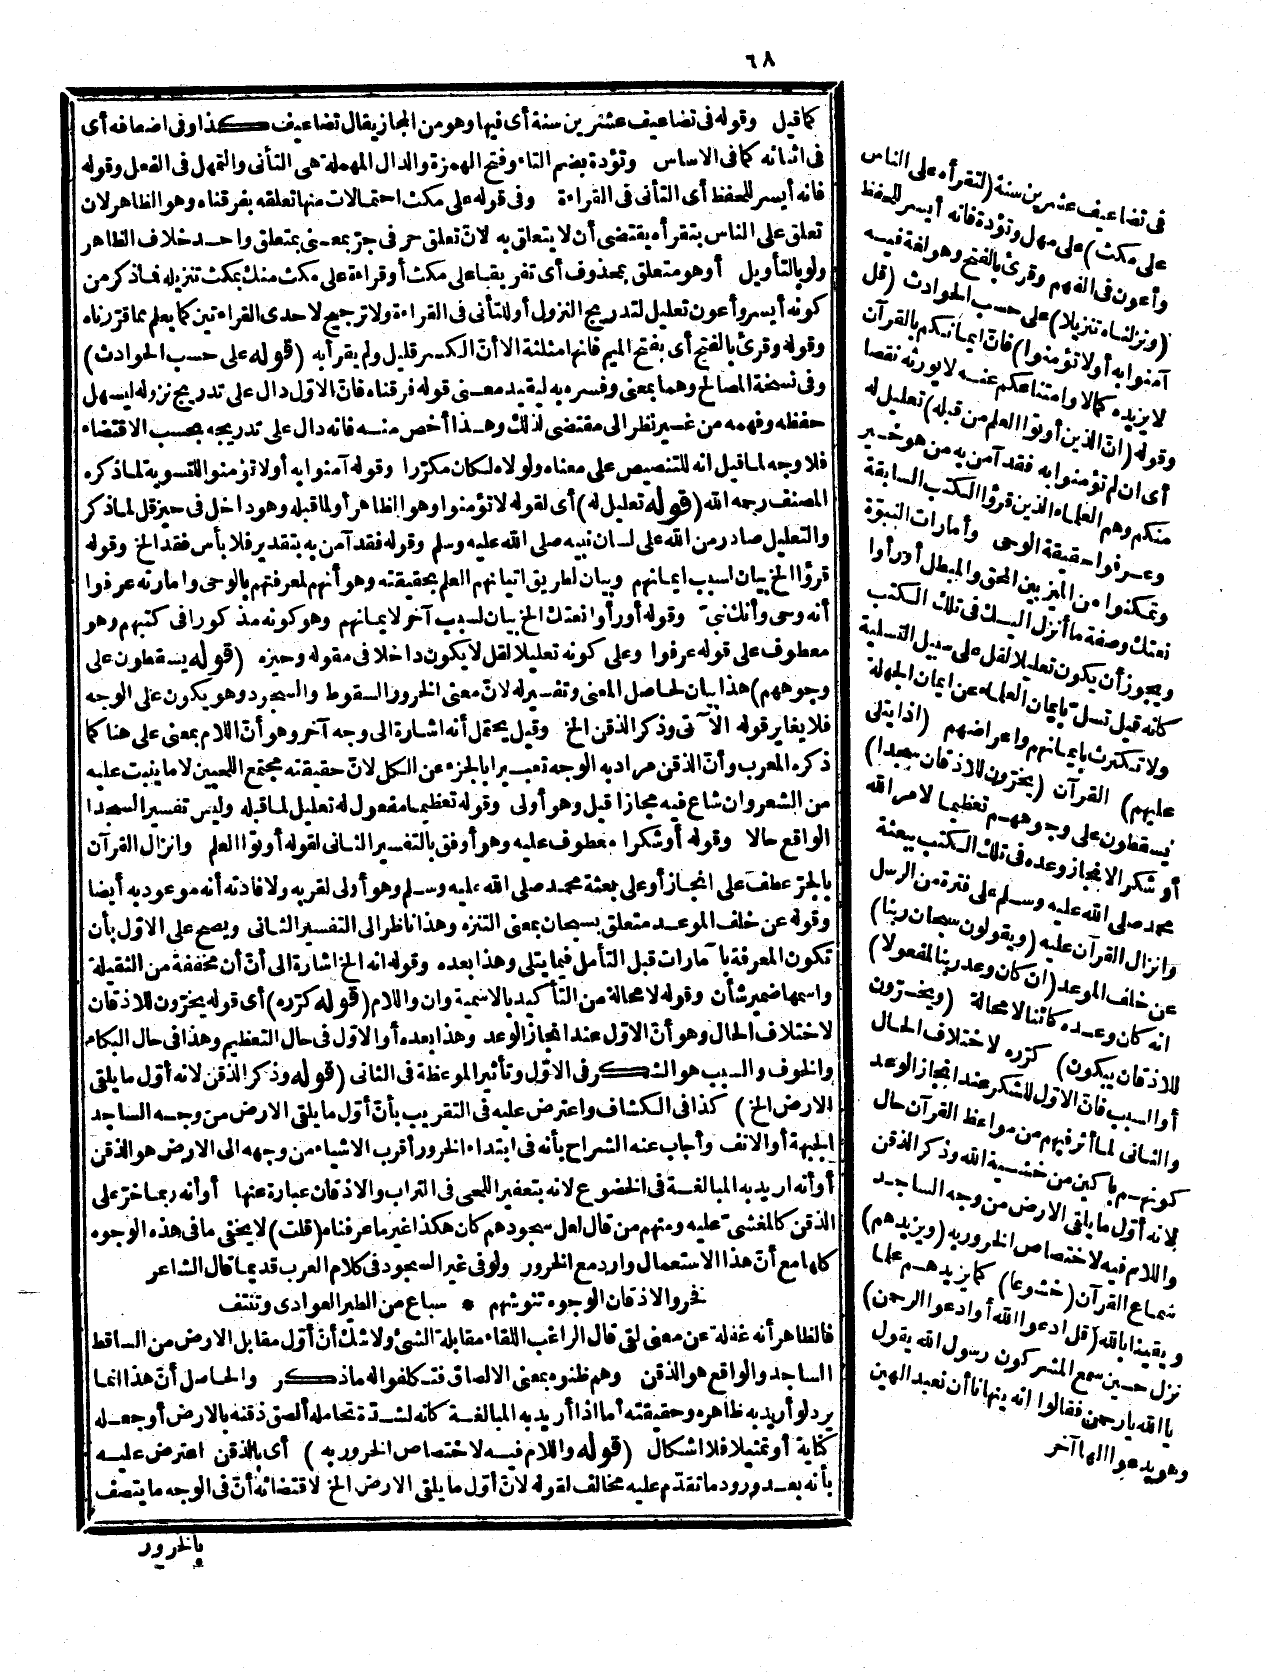 ٦٨
كما قيل وقوله فى تضاعيف عشرين سنة أى فيها وهو من المجاز يقال تضاعيف كذا وفى اضعافه أى
فى اثنائه كما فى الاساس وتؤدة بضم التاء وفتح الهمزة والدال المهملة هى التأنى والتمهل فى الفعل وقوله
فانه أيسر للحفظ أى التأنى فى القراءة وفى قوله على مكث احتمالات منها تعلقه بفرقناه وهو الظاهر لان
تعلق على الناس بتقرأه يقتضى أن لا يتعلق به لانّ تعلق حر فى جرّ بمعنى بمتعلق واحد خلاف الظاهر
ولو بالتأويل أو هو متعلق بمحذوف أى تفريقا على مكث أو قراءة على مكث منك بمكث تنزيله فاذكر من
كونه أيسر وأعون تعليل لتدريج النزول أو للتأنى فى القراءة ولا ترجيح لاحدى القراءتين كما يعلم بما قررناه
وقوله وقرئ بالفتح أى بفتح الميم فانها مثلثة الا أنّ الكسر قليل ولم يقرأ به (قوله على حسب الحوادث)
وفى نسخة المصالح وهما بمعنى وفسره به ليفيد معنى قوله فرقناه فانّ الاوّل دال على تدريج نزوله ليسهل
حفظه وفهمه من غير نظر الى مقتضى لذلك وهذا أخص منه فانه دال على تدريجه بحسب الاقتضاء
فلا وجه لما قيل انه للتنصيص على معناه ولولاه لكان مكرّرا وقوله آمنوا به أولا تؤمنوا للتسوية لما ذكره
المصنف رحمه الله (قوله تعليل له) أى لقوله لا تؤمنوا وهو الظاهر أو لما قبله وهو داخل فى حيز قل لما ذكر
والتعليل صادر من الله على لسان نبيه صلى الله عليه وسلم وقوله فقد آمن به بتقدير فلا بأس فقد الخ وقوله
قرؤا الخ بيان لسبب ايمانهم وبيان لطريق اتيانهم العلم بحقيقته وهو أنهم لمعرفتهم بالوحى وامارته عرفوا
أنه وحى وأنك نبىّ وقوله أو رأوا نعتك الخ بيان لسبب آخر لايمانهم وهو كونه مذكورا فى كتبهم وهو
معطوف على قوله عرفوا وعلى كونه تعليلا لقل لا يكون داخلا فى مقوله وحيزه (قوله يسقطون على
وجوههم) هذا بيان لحاصل المعنى وتفسير له لانّ معنى الخرور السقوط والسجود وهو يكون على الوجه
فلا يغاير قوله الآتى وذكر الذقن الخ وقيل يحتمل أنه اشارة الى وجه آخر وهو أنّ اللام بمعنى على هنا كما
ذكره المعرب وأنّ الذقن مراد به الوجه تعبيرا بالجزء عن الكل لانّ حقيقته مجتمع اللحيين لا ما ينبت عليه
من الشعر وان شاع فيه مجازا قيل وهو أولى وقوله تعظيما مفعول له تعليل لما قبله وليس تفسير السجدا
الواقع حالا وقوله أو شكرا معطوف عليه وهو أوفق بالتفسير الثانى لقوله أوتوا العلم وانزال القرآن
بالجرّ عطف على انجاز أو على بعثة محمد صلى الله عليه وسلم وهو أولى لقربه ولافادته أنه موعود به أيضا
وقوله عن خلف الموعد متعلق بسبحان بمعنى التنزه وهذا ناظر الى التفسير الثانى ويصح على الاوّل بأن
تكون المعرفة بامارات قبل التأمل فيما يتلى وهذا بعده وقوله انه الخ اشارة الى أنّ أن مخففة من الثقيلة
واسمها ضمير شأن وقوله لا محالة من التأكيد بالاسمية وان واللام (قوله كرّره) أى قوله يخرّون للاذقان
لاختلاف الحال وهو أنّ الاوّل عند انجاز الوعد وهذا بعده أو الاوّل فى حال التعظيم وهذا فى حال البكاء
والخوف والسبب هو الشكر فى الاوّل وتأثير الموعظة فى الثانى (قوله وذكر الذقن لانه أوّل ما يلقى
الارض الخ) كذا فى الكشاف واعترض عليه فى التقريب بأنّ أوّل ما يلقى الارض من وجه الساجد
الجبهة أو الانف وأجاب عنه الشراح بأنه فى ابتداء الخرور أقرب الاشياء من وجهه الى الارض هو الذقن
أو أنه اريد به المبالغة فى الخضوع لانه بتعفير اللحى فى التراب والاذقان عبارة عنها أو أنه ربما خرّ على
الذقن كالمغشىّ عليه ومنهم من قال لعل سجودهم كان هكذا غير ما عرفناه (قلت) لا يخفى ما فى هذه الوجوه
كلها مع أنّ هذا الاستعمال وارد مع الخرور ولو فى غير السجود فى كلام العرب قديما قال الشاعر
فخروا لاذقان الوجوه تنوشهم * سباع من الطير العوادى وتنتف
فالظاهر أنه غفلة عن معنى لقى قال الراغب اللقاء مقابلة الشىء ولا شك أنّ أوّل مقابل الارض من الساقط
الساجد والواقع هو الذقن وهم ظنوه بمعنى الالصاق فتكلفوا له ما ذكر والحاصل أنّ هذا انما
يرد لو أريد به ظاهره وحقيقته أما اذا أريد به المبالغة كأنه لشدّة تحامله ألصق ذقنه بالارض أو جعله
كناية أو تمثيلا فلا اشكال (قوله واللام فيه لاختصاص الخرور به) أى بالذقن اعترض عليه
بأنه بعد ورود ما تقدّم عليه مخالف لقوله لانّ أوّل ما يلقى الارض الخ لاقتضائه أنّ فى الوجه ما يتصف
بالخرور
فى تضاعيف عشرين سنة (لتقرأه على الناس
على مكث) على مهل وتؤدة فانه أيسر للحفظ
وأعون فى الفهم وقرئ بالفتح وهو لغة فيه
(ونزلناه تنزيلا) على حسب الحوادث (قل
آمنوا به أولا تؤمنوا) فانّ ايمانكم بالقرآن
لا يزيده كمالا وامتناعكم عنه لا يورثه نقصا
وقوله (انّ الذين أوتوا العلم من قبله) تعليل له
أى ان لم تؤمنوا به فقد آمن به من هو خير
منكم وهم العلماء الذين قرؤا الكتب السابقة
وعرفوا حقيقة الوحى وأمارات النبوّة
وتمكنوا من الميز بين المحق والمبطل أو رأوا
نعتك وصفة ما أنزل اليك فى تلك الكتب
ويجوز أن يكون تعليلا لقل على سبيل التسلية
كأنه قيل تسلّ بايمان العلماء عن ايمان الجهلة
ولا تكترث بايمانهم واعراضهم (اذا يتلى
عليهم) القرآن (يخرّون للاذقان سجدا)
يسقطون على وجوههم تعظيما لامر الله
أو شكر الانجاز وعده فى تلك الكتب ببعثة
محمد صلى الله عليه وسلم على فترة من الرسل
وانزال القرآن عليه (ويقولون سبحان ربنا)
عن خلف الموعد (ان كان وعد ربنا لمفعولا)
انه كان وعده كائنا لا محالة (ويخرّون
للاذقان يبكون) كرّره لاختلاف الحال
أو السبب فانّ الاوّل للشكر عند انجاز الوعد
والثانى لما أثر فيهم من مواعظ القرآن حال
كونهم باكين من خشية الله وذكر الذقن
لانه أوّل ما يلقى الارض من وجه الساجد
واللام فيه لاختصاص الخرور به (ويزيدهم)
سماع القرآن (خشوعا) كما يزيدهم علما
ويقينا بالله (قل ادعوا الله أو ادعوا الرحمن)
نزل حين سمع المشركون رسول الله يقول
يا الله يا رحمن فقالوا انه ينهانا أن نعبد الهين
وهو يدعو الها آخر